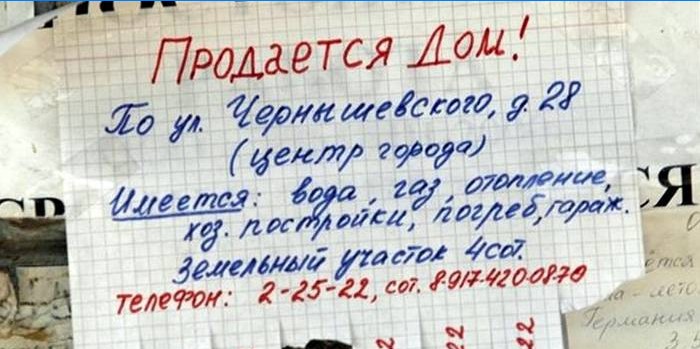 Продается Дом!
По ул. Чернышевского, д. 28
(центр города)
Имеется: вода, газ, отопление,
хоз. постройки, погреб, гараж.
Земельный участок 4 сот.
телефон: 2-25-22, сот. 8-917-420-0870
22
22
Германия